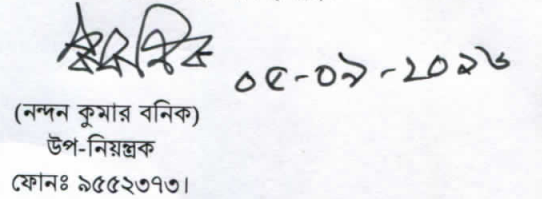 ০৫-০৯-২০২৬
(নন্দন কুমার বনিক)
উপ-নিয়ন্ত্রক
ফোনঃ ৯৫৫২৩৭৩।